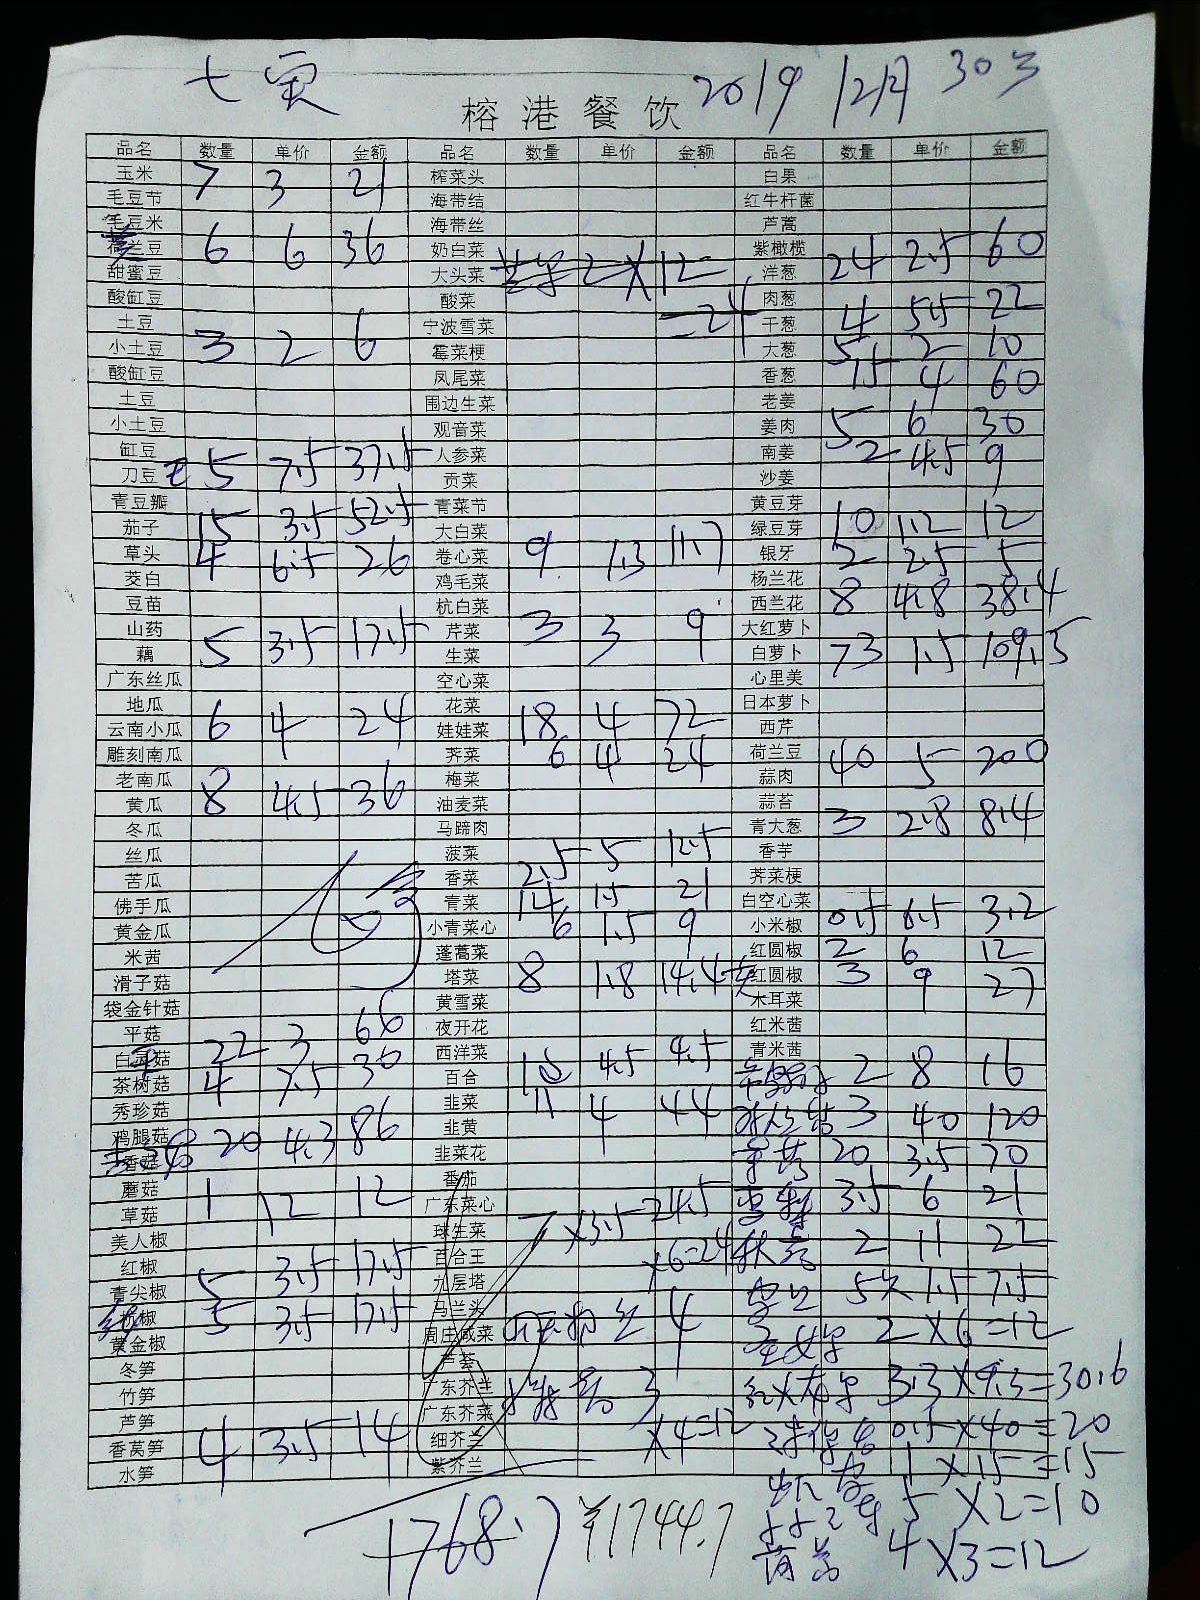 七宝 2019 12月 30号
榕港餐饮
品名 数量 单价 金额 品名 数量 单价 金额 品名 数量 单价 金额
玉米 7 3 21 榨菜头 白果
毛豆节 海带结 红牛杆菌
毛豆米 海带丝 芦蒿
荷兰豆 6 6 36 奶白菜 紫橄榄
甜蜜豆 大头菜 2 X 12 洋葱 24 2.5 60
酸缸豆 酸菜 肉葱
土豆 宁波雪菜 =24 干葱 4 5.5 22
小土豆 3 2 6 霉菜梗 大葱 5 2 10
酸缸豆 凤尾菜 香葱 15 4 60
土豆 围边生菜 老姜
小土豆 观音菜 姜肉 5 6 30
缸豆 人参菜 南姜 2 4.5 9
刀豆 5 7.5 37.5 贡菜 沙姜
青豆瓣 青菜节 黄豆芽
茄子 15 3.5 52.5 大白菜 绿豆芽 10 1.2 12
草头 4 6.5 26 卷心菜 9 1.3 11.7 银牙 2 2.5 5
茭白 鸡毛菜 杨兰花
豆苗 杭白菜 西兰花 8 4.8 38.4
山药 芹菜 3 3 9 大红萝卜
藕 5 3.5 17.5 生菜 白萝卜 73 1.5 109.5
广东丝瓜 空心菜 心里美
地瓜 花菜 日本萝卜
云南小瓜 6 4 24 娃娃菜 18 4 72 西芹
雕刻南瓜 荠菜 6 4 24 荷兰豆 40 5 200
老南瓜 梅菜 蒜肉
黄瓜 8 4.5 36 油麦菜 蒜苔
冬瓜 马蹄肉 青大葱 3 2.8 8.4
丝瓜 菠菜 2.5 5 12.5 香芋
苦瓜 香菜 荠菜梗
佛手瓜 青菜 14 1.5 21 白空心菜
黄金瓜 小青菜心 6 1.5 9 小米椒 0.5 6.5 3.2
米茜 蓬蒿菜 红圆椒 2 6 12
滑子菇 塔菜 8 1.8 14.4 黄红圆椒 3 9 27
袋金针菇 黄雪菜 木耳菜
平菇 66 夜开花 红米茜
白灵菇 22 3 西洋菜 青米茜
茶树菇 4 7.5 30 百合 4.5 4.5 2 8 16
秀珍菇 韭菜 11 4 44 3 40 120
鸡腿菇 韭黄
香菇 20 4.3 86 韭菜花 20 3.5 70
蘑菇 1 12 12 番茄 3.5 6 21
草菇 广东菜心 7 X3.5 24.5
美人椒 球生菜 秋葵 2 11 22
红椒 百合王 X6=24
青尖椒 5 3.5 17.5 九层塔 5 X 1.5 7.5
杭椒 5 3.5 17.5 马兰头 4
黄金椒 周庄咸菜 2 X6=12
冬笋 芦荟
竹笋 广东芥兰 3.3X9.3=30.6
芦笋 广东芥菜 3
香莴笋 4 3.5 14 细芥兰 X4=12 0.5X40=20
水笋 紫芥兰 1 X15=15
1768.7 ¥1744.7 5 X2=10
4 X3=12